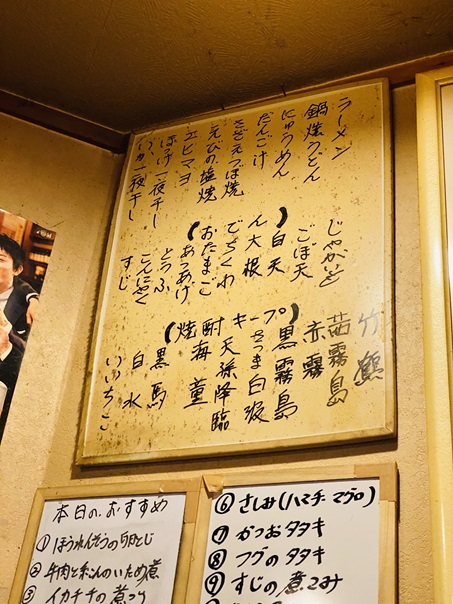 ラーメン
鍋焼うどん
にゅうめん
だんご汁
さざえつぼ焼
えびの塩焼
エビマヨ
ほっけ一夜干し
いか一夜干し
(おでん)
じゃがいも
ごぼ天
白天
大根
ちくわ
たまご
あつあげ
とうふ
こんにゃく
すじ
(焼酎キープ)
竹鶴
茜霧島
赤霧
黒霧島
さつま白波
天孫降臨
海童
黒馬
白水
いいちこ
本日のおすすめ
①ほうれんそうの卵とじ
②牛肉と糸こんのいため煮
③イカチチの煮つけ
⑥さしみ(ハマチ・マグロ)
⑦かつおタタキ
⑧フグのタタキ
⑨すじの煮こみ